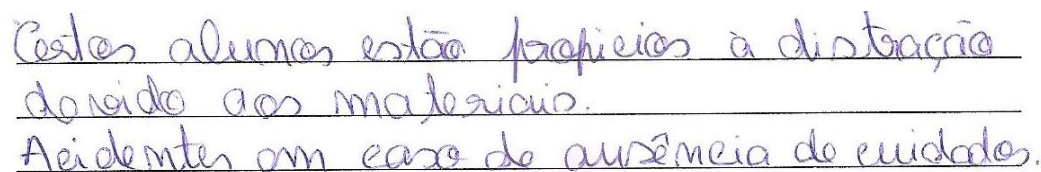 Certos alunos estão propicios à distração
devido aos materiais.
Acidentes em caso de ausência de cuidados.